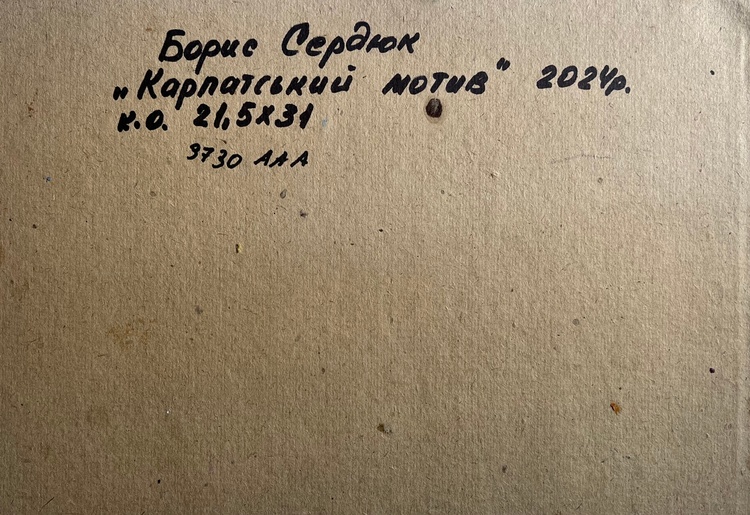 Борис Сердюк
„Карпатський мотив" 2024р.
к.о. 21,5х31
9730 ААА